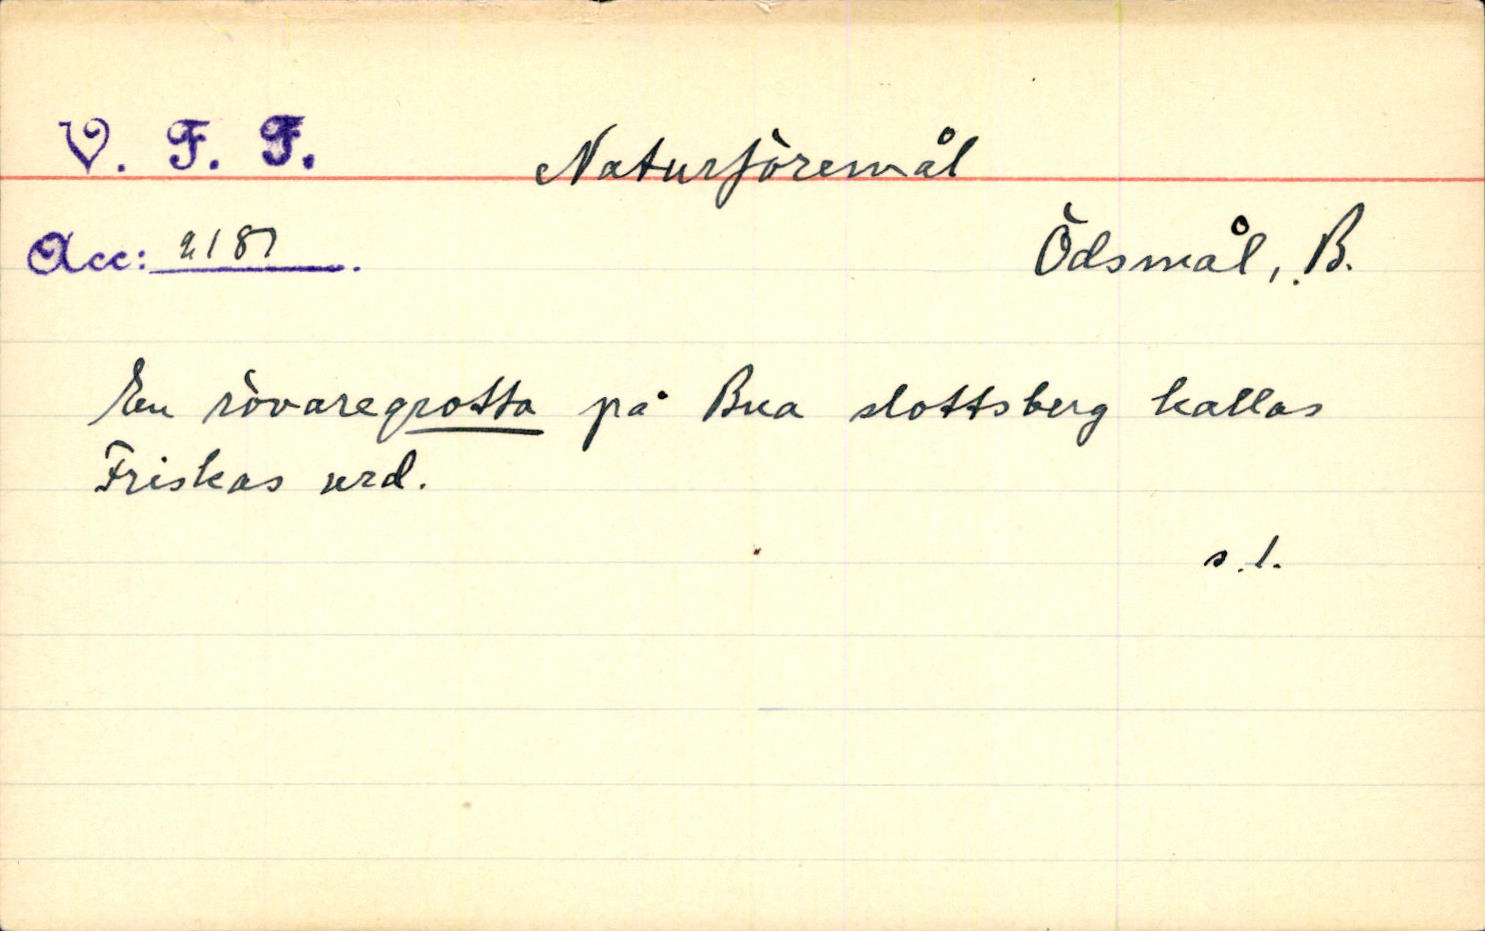 V. F. F. Naturföremål
Acc: 2187. Ödsmål, B.
En rövaregrotta på Bua slottsberg kallas
Friskas urd.
s.1.